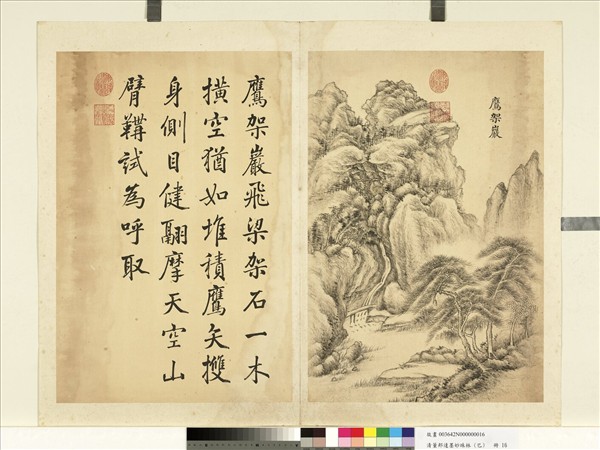 鷹架巖
鷹架巖飛梁架石一木
撗空猶如堆積鷹矢㩳
身側目健翮摩天空山
臂鞲試為呼取
故畫 003642N000000016
清董邦達墨妙珠林(巳) 冊 16